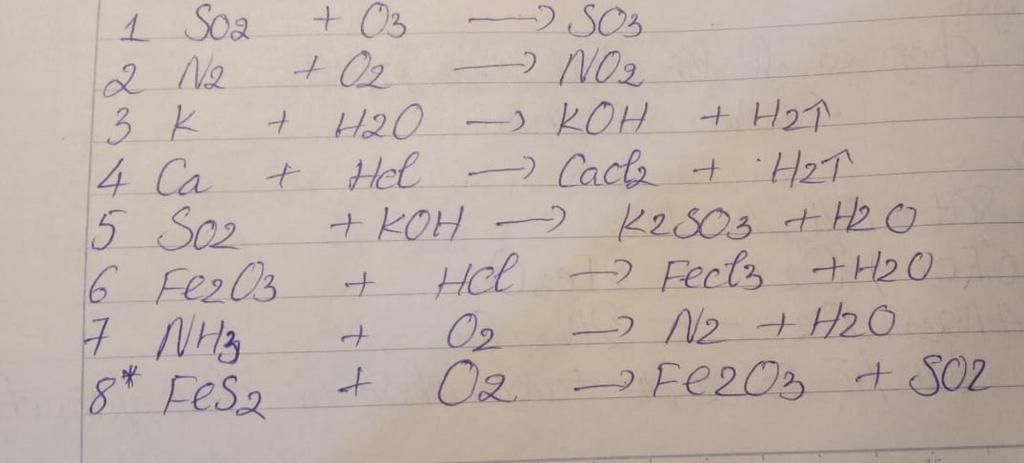 1 SO2 + O3 → SO3
2 N2 + O2 → NO2
3 K + H2O → KOH + H2↑
4 Ca + Hcl → Cacl2 + H2↑
5 SO2 + KOH → K2SO3 + H2O
6 Fe2O3 + HCl → Fecl3 + H2O
7 NH3 + O2 → N2 + H2O
8* FeS2 + O2 → Fe2O3 + SO2